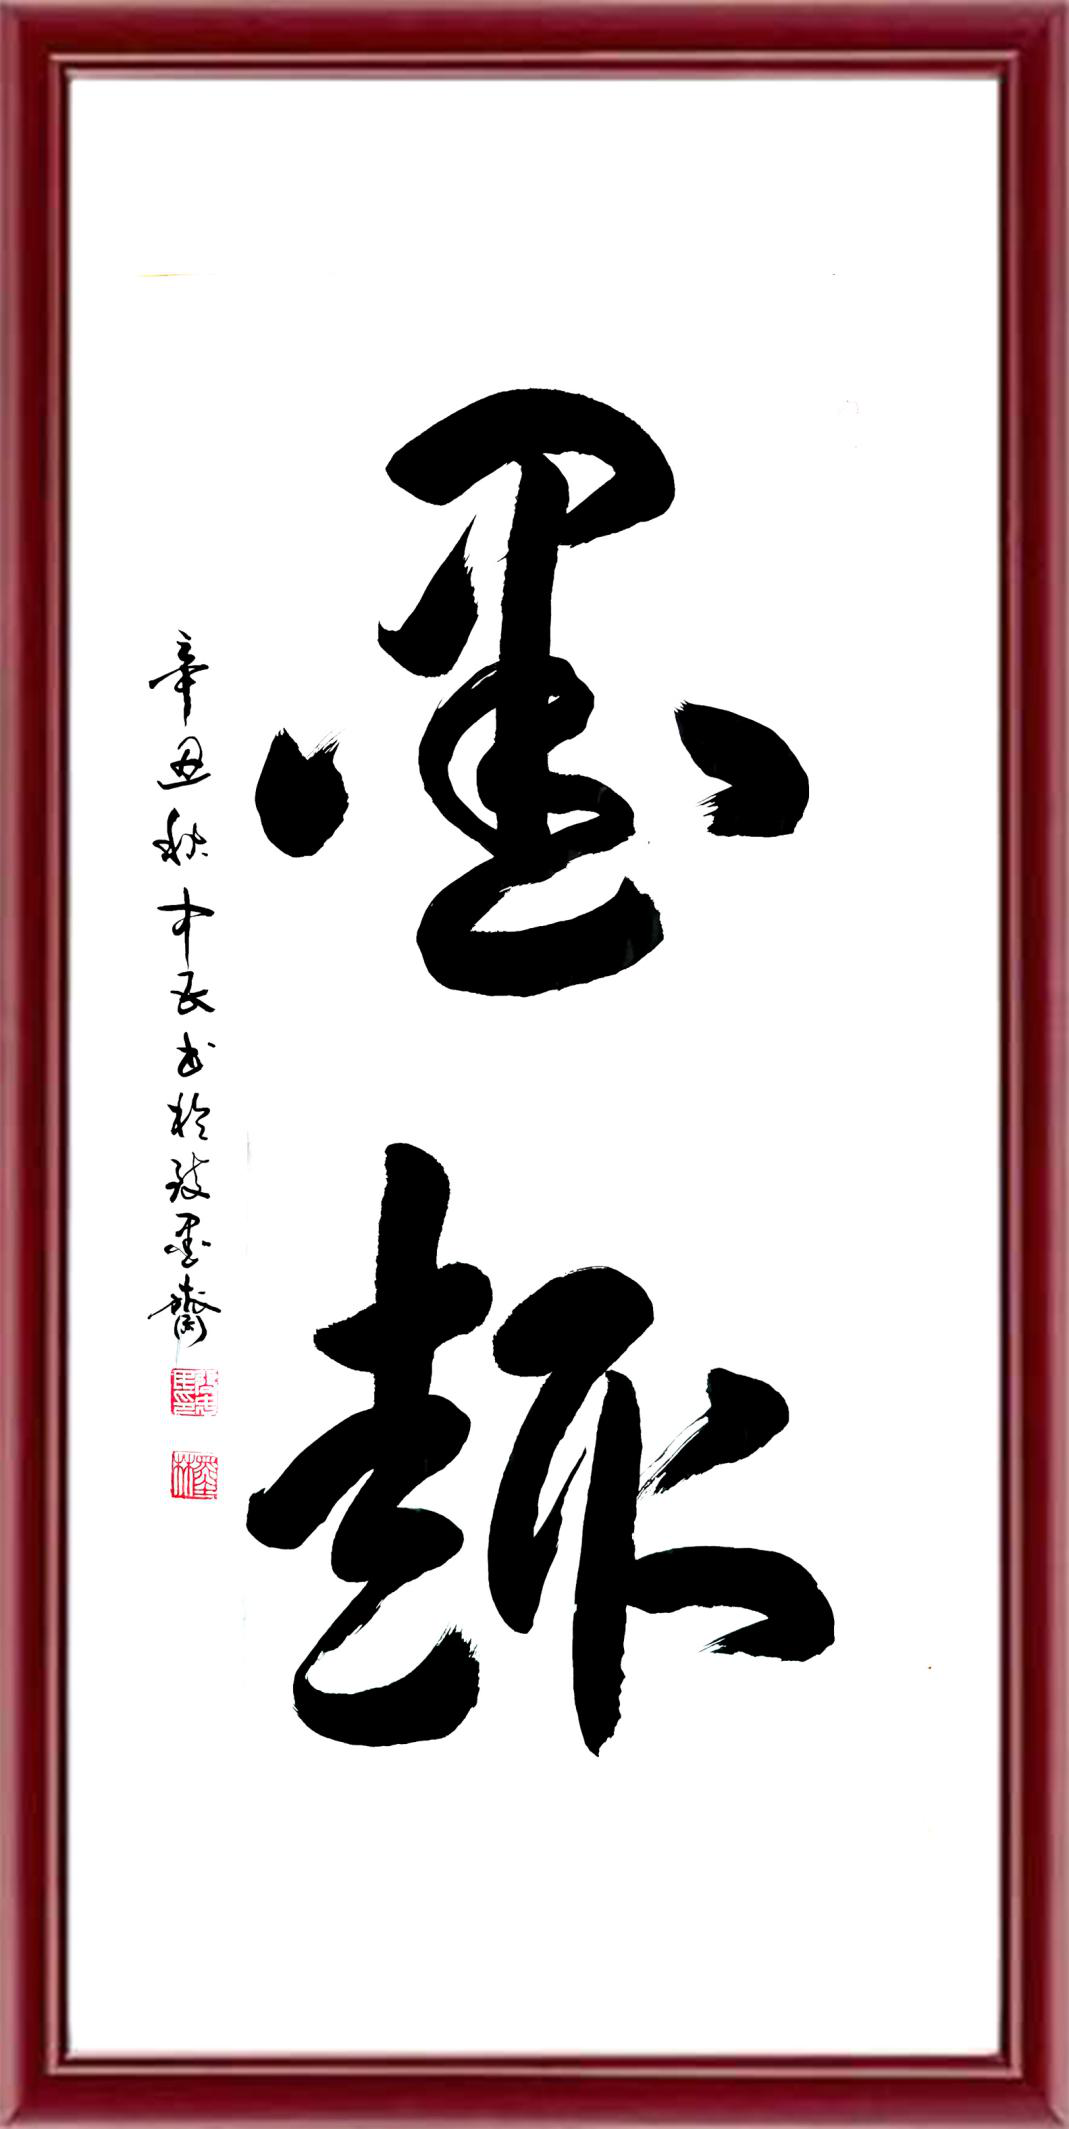 墨趣
辛丑秋中民书於致墨斋